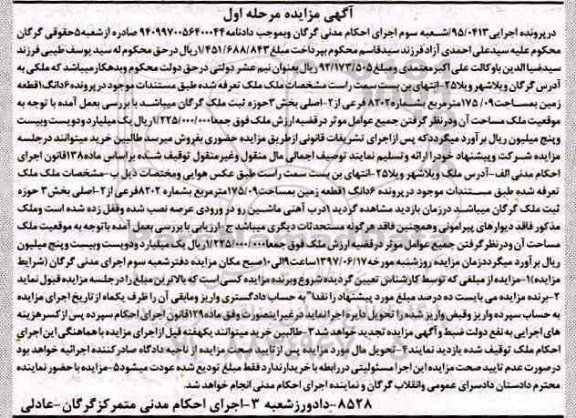 آگهی مزایده مرحله اول
در پرونده اجرایی ۹۵/۰۴۱۳/شعبه سوم اجرای احکام مدنی گرگان وبموجب دادنامه ۹۴۰۹۹۷۰۰۵۶۴۰۰۰۴۴ صادره از شعبه ۵ حقوقی گرگان
محکوم علیه سیدعلی احمدی آزاد فرزند سیدقاسم محکوم بپرداخت مبلغ ۱/۴۵۱/۶۸۸/۸۴۳ ریال درحق محکوم له سید یوسف طیبی فرزند
سیدضیا الدین باوکالت علی اکبرمعمدی ومبلغ ۹۲/۱۷۳/۵۰۵ ریال بعنوان نیم عشر دولتی درحق دولت محکوم وبدهکارمیباشد که ملکی به
آدرس گرگان ویلاشهر ویلا۲۵- انتهای بن بست سمت راست مشخصات ملک ملک تعرفه شده طبق مستندات موجود در پرونده ۶دانگ ۱قطعه
زمین بمساحت ۱۷۵/۰۹مترمربع بشماره ۸۲۰۲ فرعی از ۲-اصلی بخش ۳حوزه ثبت ملک گرگان میباشد با بررسی بعمل آمده با توجه به
موقعیت ملک مساحت آن ودرنظر گرفتن جمیع عوامل موثر در قضیه ارزش ملک فوق جمعا ۱/۲۲۵/۰۰۰/۰۰۰ریال یک میلیارد ودویست وبیست
وپنج میلیون ریال برآورد میگردد که پس ازاجرای تشریفات قانونی ازطریق مزایده حضوری بفروش میرسد طالبین خرید میتوانند درجلسه
مزایده شرکت وپیشنهاد خودرا ارائه وتسلیم نمایند توصیف اجمالی مال منقول وغیرمنقول توقیف شده براساس ماده ۱۳۸قانون اجرای
احکام مدنی الف-آدرس ملک ویلاشهر ویلا۲۵-انتهای بن بست سمت راست طبق عکس هوایی ومختصات ذیل ب-مشخصات ملک ملک
تعرفه شده طبق مستندات موجود درپرونده ۶دانگ ۱قطعه زمین بمساحت ۱۷۵/۰۹مترمربع بشماره ۸۲۰۲فرعی از ۲-اصلی بخش ۳ حوزه
ثبت ملک گرگان میباشد درزمان بازدید مشاهده گردید ۱درب آهنی ماشین رو در ورودی عرصه نصب شده وقفل زده شده است وملک
مذکور فاقد دیوارهای پیرامونی وهمچنین فاقد هرگونه مستحدثات دیگری میباشد ج-ارزیابی با بررسی بعمل آمده باتوجه به موقعیت ملک
مساحت آن ودرنظر گرفتن جمیع عوامل موثر درقضیه ارزش ملک فوق جمعا ۱/۲۲۵/۰۰۰/۰۰۰ریال یک میلیارد ودویست وبیست وپنج میلیون
ریال برآورد میگردد زمان مزایده روزشنبه مورخه ۱۳۹۷/۰۶/۱۷ساعت ۹الی ۱۰صبح مکان مزایده دفترشعبه سوم اجرای مدنی گرگان (شرایط
مزایده) ۱-مزایده از مبلغی که توسط کارشناس تعیین گردیده شروع وبرنده مزایده کسی است که بالاترین مبلغ را درجلسه مزایده قبول نماید
۲-برنده مزایده می بایست ده درصد مبلغ مورد پیشنهاد را نقدا" به حساب دادگستری واریز ومابقی آن را ظرف یکماه از تاریخ اجرای مزایده
به حساب سپرده واریز وقبض واریز شده را تحویل دایره اجرا نماید درغیر اینصورت وفق ماده ۱۲۹قانون اجرای احکام سپرده پس از کسر هزینه
های اجرایی به نفع دولت ضبط و آگهی مزایده تجدید خواهد شد ۳-طالبین خرید میتوانند یکهفته قبل ازاجرای مزایده با هماهنگی این اجرای
احکام ملک توقیف شده بازدید نمایند ۴-تحویل مال مورد مزایده پس از تایید صحت مزایده از ناحیه دادگاه صادرکننده اجرائیه خواهد بود
درصورت عدم تایید صحت مزایده این اجرا مسئولیتی دررابطه با خریدارندارد فقط مبلغ تودیع شده عودت میشود ۵-مزایده با حضور نماینده
محترم دادستان دادسرای عمومی وانقلاب گرگان و نماینده اجرای احکام مدنی انجام خواهد شد.
۸۵۲۸-دادورزشعبه ۳-اجرای احکام مدنی متمرکزگرگان-عادلی